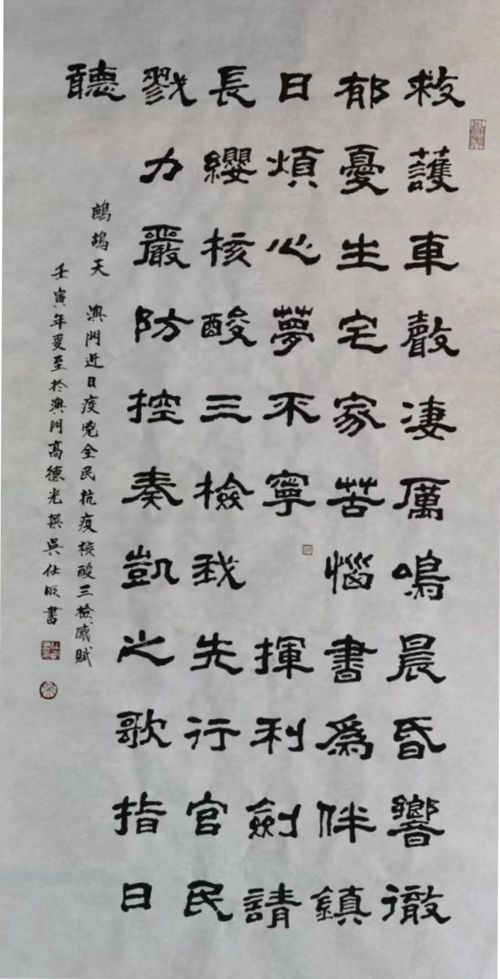 救護車聲淒厲鳴晨昏響徹
郁憂生宅家苦惱書為伴鎮
日煩心夢不寧 揮利劍請
長纓核酸三檢我先行官民
戮力嚴防控奏凱之歌指日
聽
鷓鴣天 澳門近日疫兇全民抗疫核酸三檢感賦
壬寅年夏至於澳門高德光撰吳仕明書